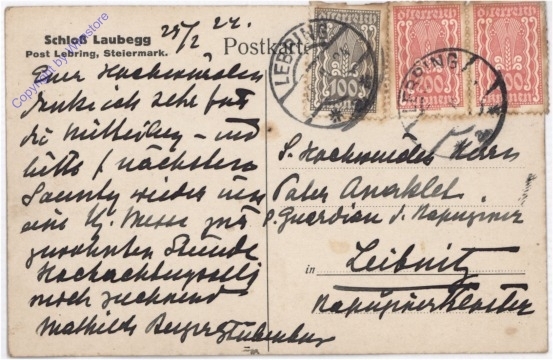 Schloß Laubegg
Post Lebring, Steiermark.
25/2 24.
Postkarte
Euer Hochwürden
danke ich sehr für
die Mitteilung – und
bitte f nächsten
Sonntag wieder um
eine hl. Messe zur
gewohnten Stunde
Hochachtungsvoll
zeichnend
Mathilde
S. Hochwürden Herrn
Pater Anaklet
P. Guardian d. Kapuziner
in Leibnitz
Kapuzinerkloster
LEBRING
LEBRING
österreich
100
kronen
österreich
200
kronen
österreich
200
kronen
Copyright by Wa-store